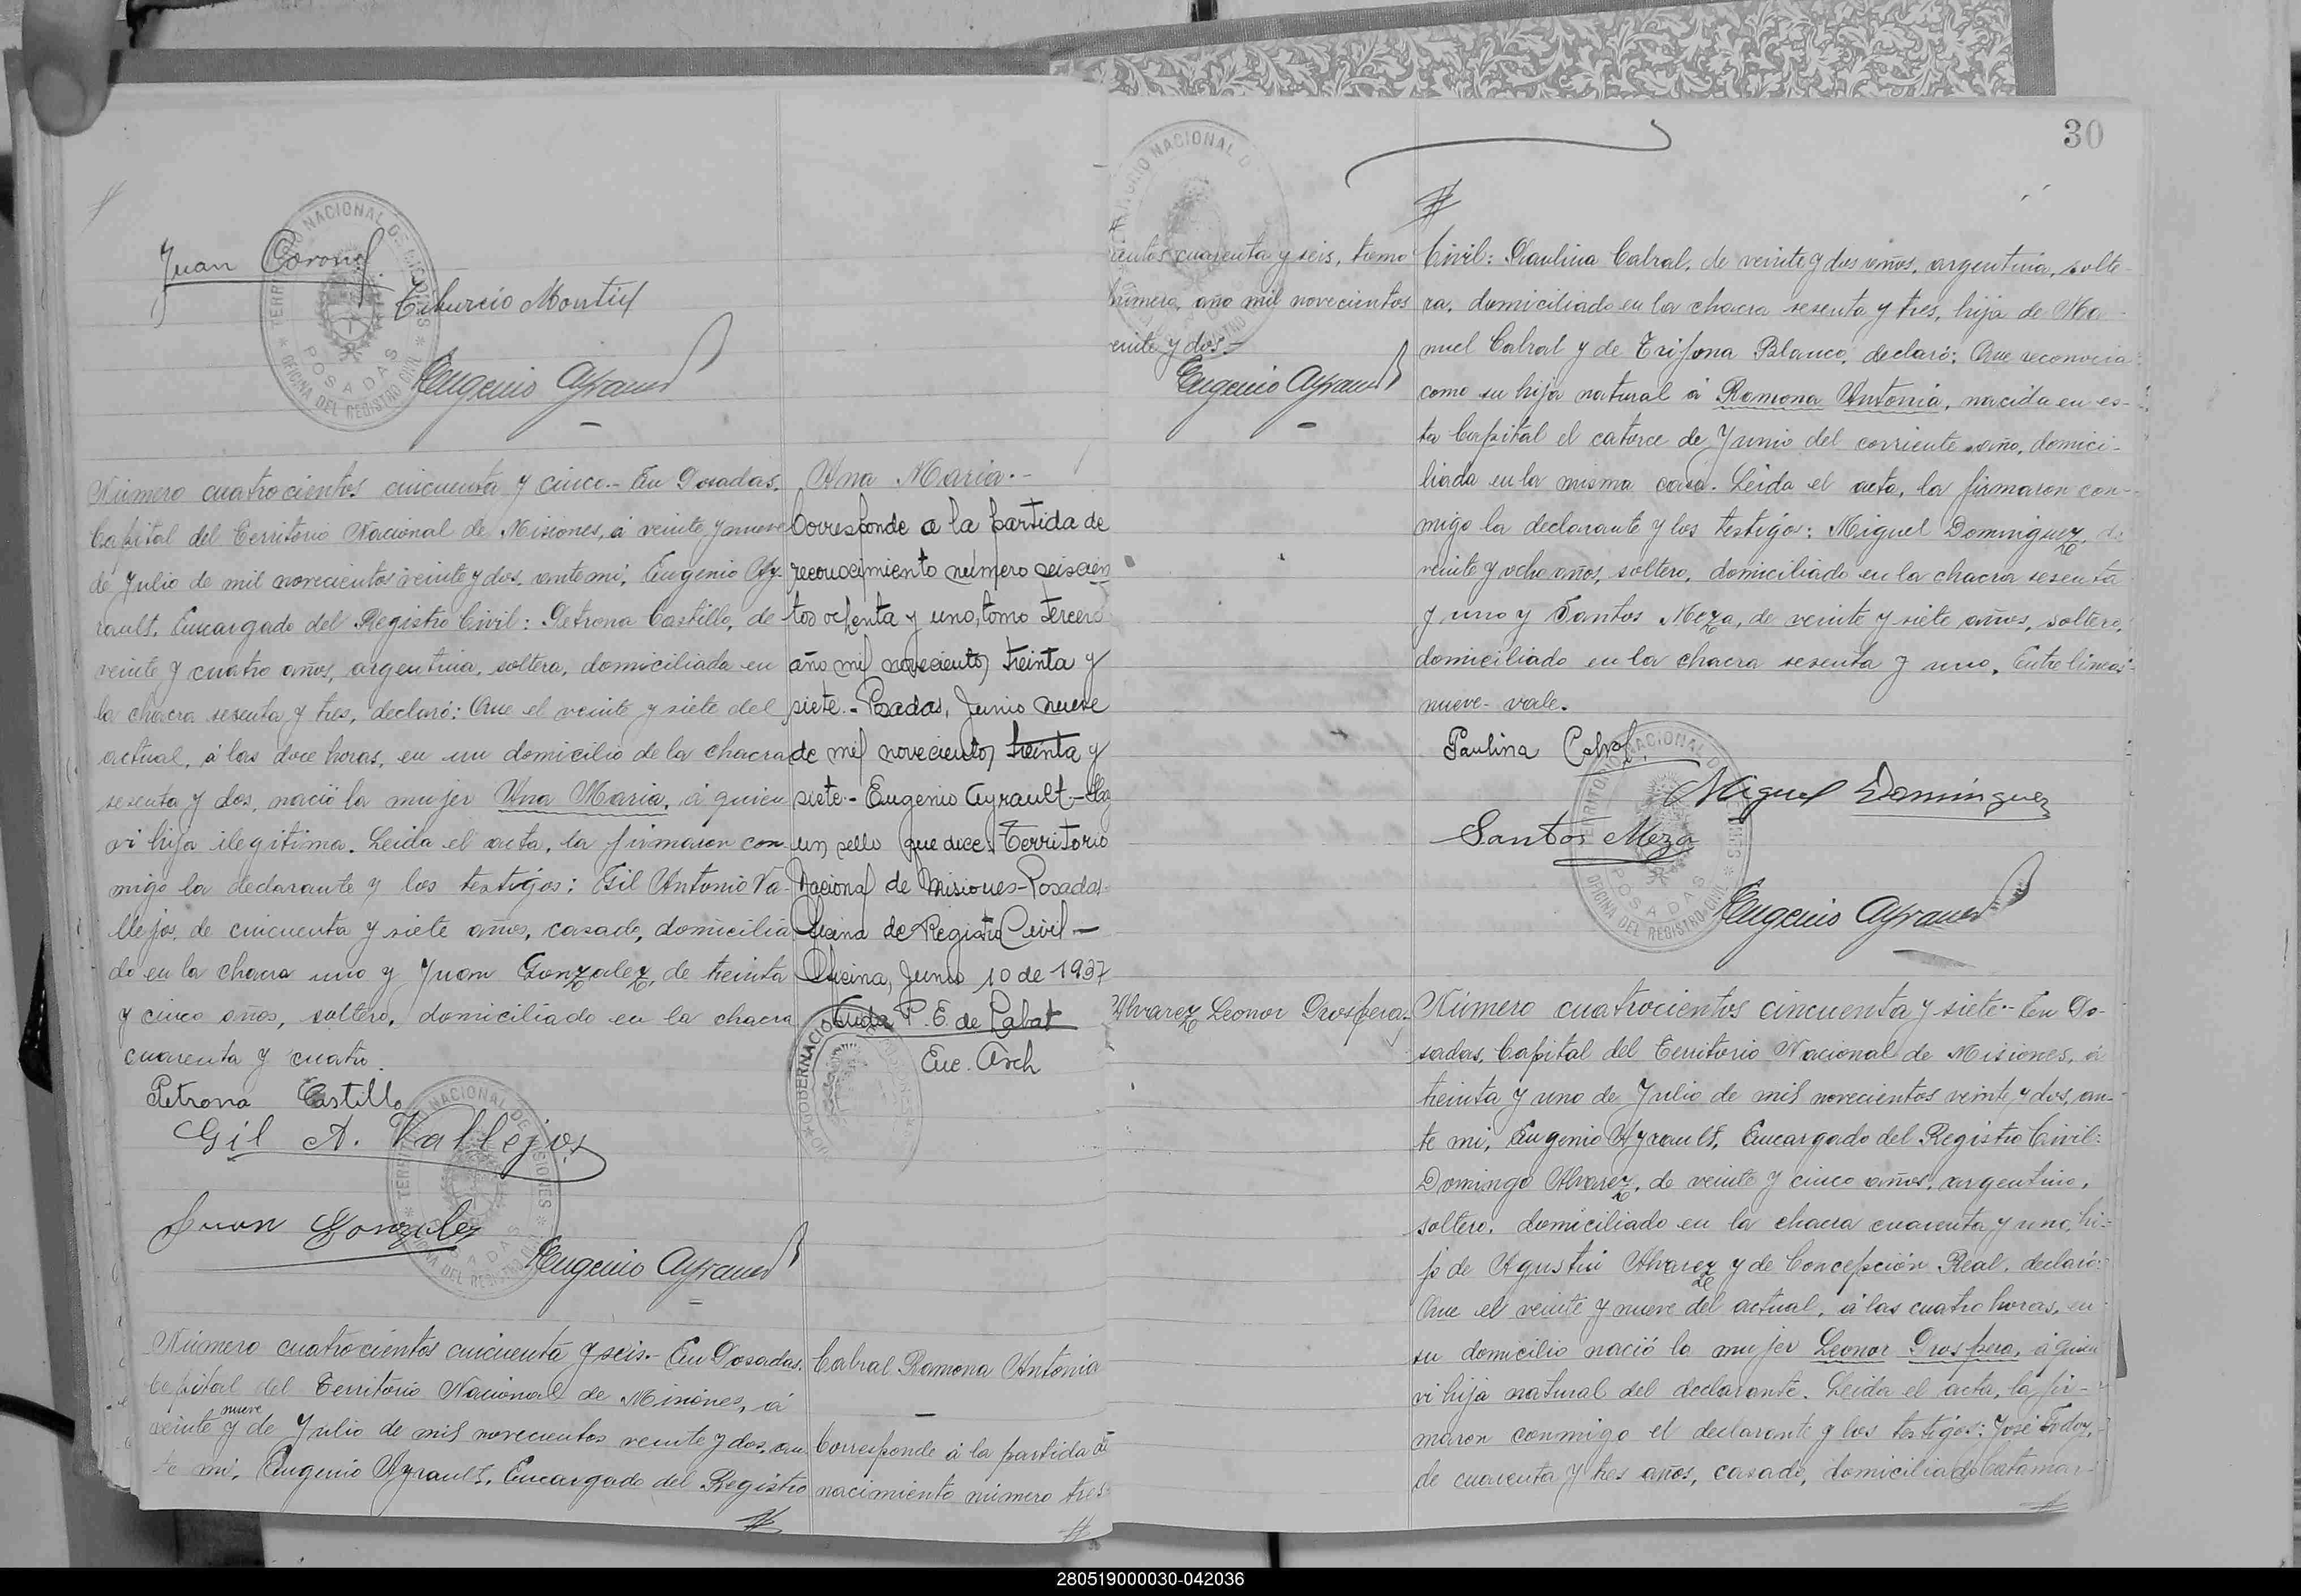 Juan Coronel
Tiburcio Montiel
Eugenio Ayrault
TERRITORIO NACIONAL DE MISIONES
POSADAS
OFICINA DEL REGISTRO CIVIL
Número cuatrocientos cincuenta y cinco.- En Posadas,
Capital del Territorio Nacional de Misiones, á veinte y nueve
de Julio de mil novecientos veinte y dos, ante mi, Eugenio Ay-
rault, Encargado del Registro Civil: Petrona Castillo, de
veinte y cuatro años, argentina, soltera, domiciliada en
la chacra sesenta y tres, declaró: Que el veinte y siete del
actual, á las doce horas, en un domicilio de la chacra
sesenta y dos, nació la mujer Ana Maria, á quien
vi hija ilegitima. Leida el acta, la firmaron con-
migo la declarante y los testigos: Gil Antonio Va-
llejos, de cincuenta y siete años, casado, domicilia
do en la chacra uno y Juan Gonzalez, de treinta
y cinco años, soltero, domiciliado en la chacra
cuarenta y cuatro.
Petrona Castillo
Gil A. Vallejos
Juan Gonzalez
Eugenio Ayrault
Ana Maria.-
Corresponde a la partida de
reconocimiento número seiscien
tos ochenta y uno, tomo tercero
año mil novecientos treinta y
siete.- Posadas, Junio nueve
de mil novecientos treinta y
siete.- Eugenio Ayrault - Hay
un sello que dice: Territorio
Nacional de Misiones-Posadas-
Oficina de Registro Civil-
Oficina, Junio 10 de 1937
P. E. de Rabat
Enc. Arch
Número cuatrocientos cincuenta y seis.- En Posadas,
Capital del Territorio Nacional de Misiones, á
nueve
veinte y de Julio de mil novecientos veinte y dos, an
te mi, Eugenio Ayrault, Encargado del Registro
Cabral Ramona Antonia
Corresponde á la partida de
nacimiento número tres
30
cientos cuarenta y seis, tomo
primero, año mil novecientos
veinte y dos.-
Eugenio Ayrault
Civil: Paulina Cabral, de veinte y dos años, argentina, solte-
ra, domiciliado en la chacra sesenta y tres, hija de Ma-
nuel Cabral y de Trifona Blanco, declaró: Que reconocia
como su hija natural á Ramona Antonia, nacida en es-
ta Capital el catorce de Junio del corriente año, domici-
liada en la misma casa. Leida el acta, la firmaron con-
migo la declarante y los testigos: Miguel Dominguez, de
veinte y ocho años, soltero, domiciliado en la chacra sesenta
y uno y Santos Meza, de veinte y siete años, soltero,
domiciliado en la chacra sesenta y uno. Entre lineas:
nueve- vale.
Paulina Cabral
Miguel Dominguez
Santos Meza
Eugenio Ayrault
Alvarez Leonor Prospera.
Número cuatrocientos cincuenta y siete.- En Po-
sadas, Capital del Territorio Nacional de Misiones, á
treinta y uno de Julio de mil novecientos veinte y dos, an-
te mi, Eugenio Ayrault, Encargado del Registro Civil:
Domingo Alvarez, de veinte y cinco años, argentino,
soltero, domiciliado en la chacra cuarenta y uno, hi-
jo de Agustin Alvarez y de Concepción Real, declaró:
Que el veinte y nueve del actual, á las cuatro horas, en
su domicilio nació la mujer Leonor Prospera, á quien
vi hija natural del declarante. Leida el acta, la fir-
maron conmigo el declarante y los testigos: José
de cuarenta y tres años, casado, domiciliado Catamar-
280519000030-042036